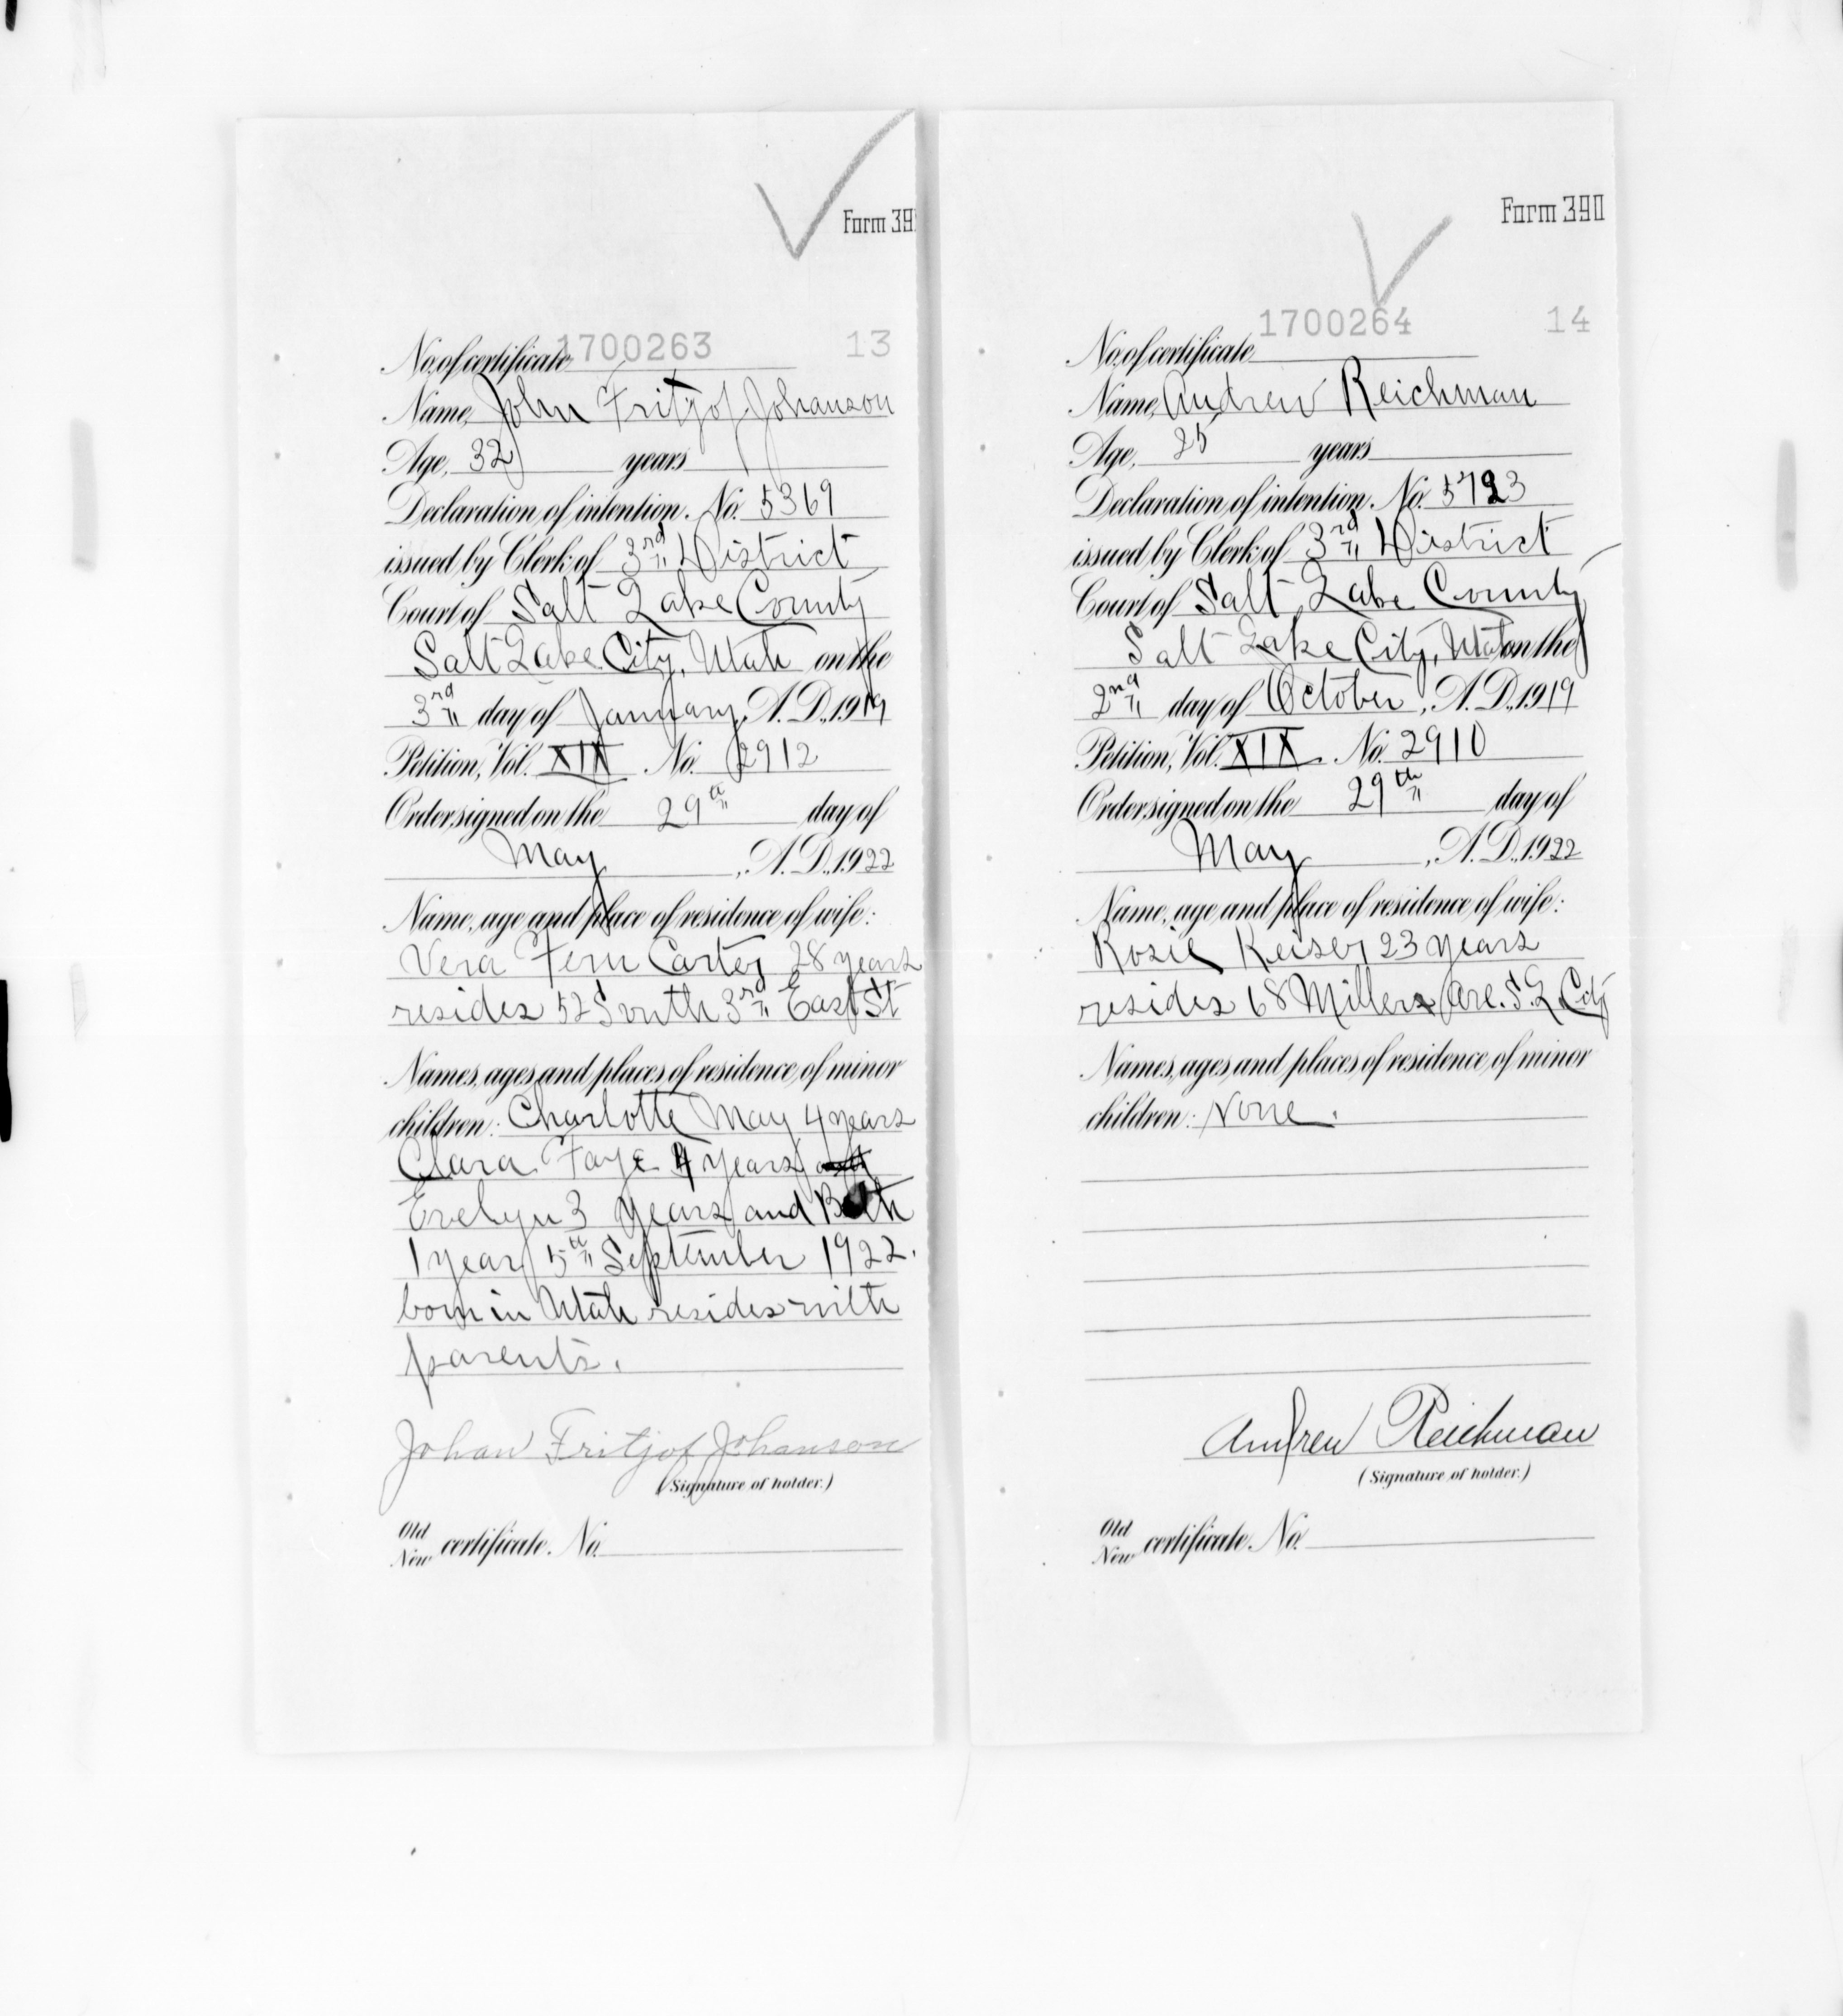 Form 39
1700263 13
No. of certificate
Name, John Fritjof Johanson
Age, 32 years
Declaration of intention, No. 5369
issued by Clerk of 3rd District
Court of Salt Lake County
Salt Lake City, Utah on the
3rd day of January, A. D., 1919
Petition, Vol. XIX No. 2912
Order signed on the 29th day of
May, A. D., 1922
Name, age and place of residence of wife:
Vera Fern Carter 28 years
resides 52 South 3rd East St
Names, ages and places of residence of minor
children: Charlotte May 4 years
Clara Faye 4 years
Evelyn 3 years and Beth
1 year 5th September 1922.
born in Utah resides with
parents.
Johan Fritjof Johanson
(Signature of holder.)
Old
New certificate. No.
Form 390
1700264 14
No. of certificate
Name, Andrew Reichman
Age, 25 years
Declaration of intention, No. 5723
issued by Clerk of 3rd District
Court of Salt Lake County
Salt Lake City, Utah on the
2nd day of October, A. D., 1919
Petition, Vol. XIX. No. 2910
Order signed on the 29th day of
May, A. D., 1922
Name, age and place of residence of wife:
Rosie Keiser 23 years
resides 68 Millers Ave. S. L. City
Names, ages and places of residence of minor
children: None.
Andrew Reichman
(Signature of holder.)
Old
New certificate. No.